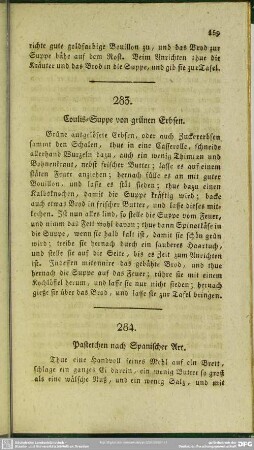 159
richte gute goldfarbige Bouillon zu, und das Brod zur
Suppe bähe auf dem Rost. Beim Anrichten thue die
Kräuter und das Brod in die Suppe, und gib sie zur Tafel.
283.
Coulis-Suppe von grünen Erbsen.
Grüne ausgelösete Erbsen, oder auch Zuckererbsen
sammt den Schalen, thue in eine Casserolle, schneide
allerhand Wurzeln dazu, auch ein wenig Thimian und
Bohnenkraut, nebst frischer Butter; lasse es auf einem
stäten Feuer anziehen; hernach fülle es an mit guter
Bouillon, und lasse es still sieden; thue dazu einen
Kalbsknochen, damit die Suppe kräftig wird; backe
auch etwas Brod in frischer Butter, und lasse dieses mit-
kochen. Ist nun alles lind, so stelle die Suppe vom Feuer,
und nimm das Fett wohl davon; thue dann Spinattäse in
die Suppe ein, wenn sie halb kalt ist, damit sie schön grün
wird; treibe sie hernach durch ein sauberes Haartuch,
und stelle sie auf die Seite, bis es Zeit zum Anrichten
ist. Indessen miternire das gebähte Brod, und thue
hernach die Suppe auf das Feuer; rühre sie mit einem
Kochlöffel herum, und lasse sie nur nicht sieden; hernach
gieße sie über das Brod, und lasse sie zur Tafel bringen.
284.
Pastetchen nach Spanischer Art.
Thue eine Handvoll feines Mehl auf ein Brett,
schlage ein ganzes Ei darein, ein wenig Butter so groß
als eine wälsche Nuß, und ein wenig Salz, und mit